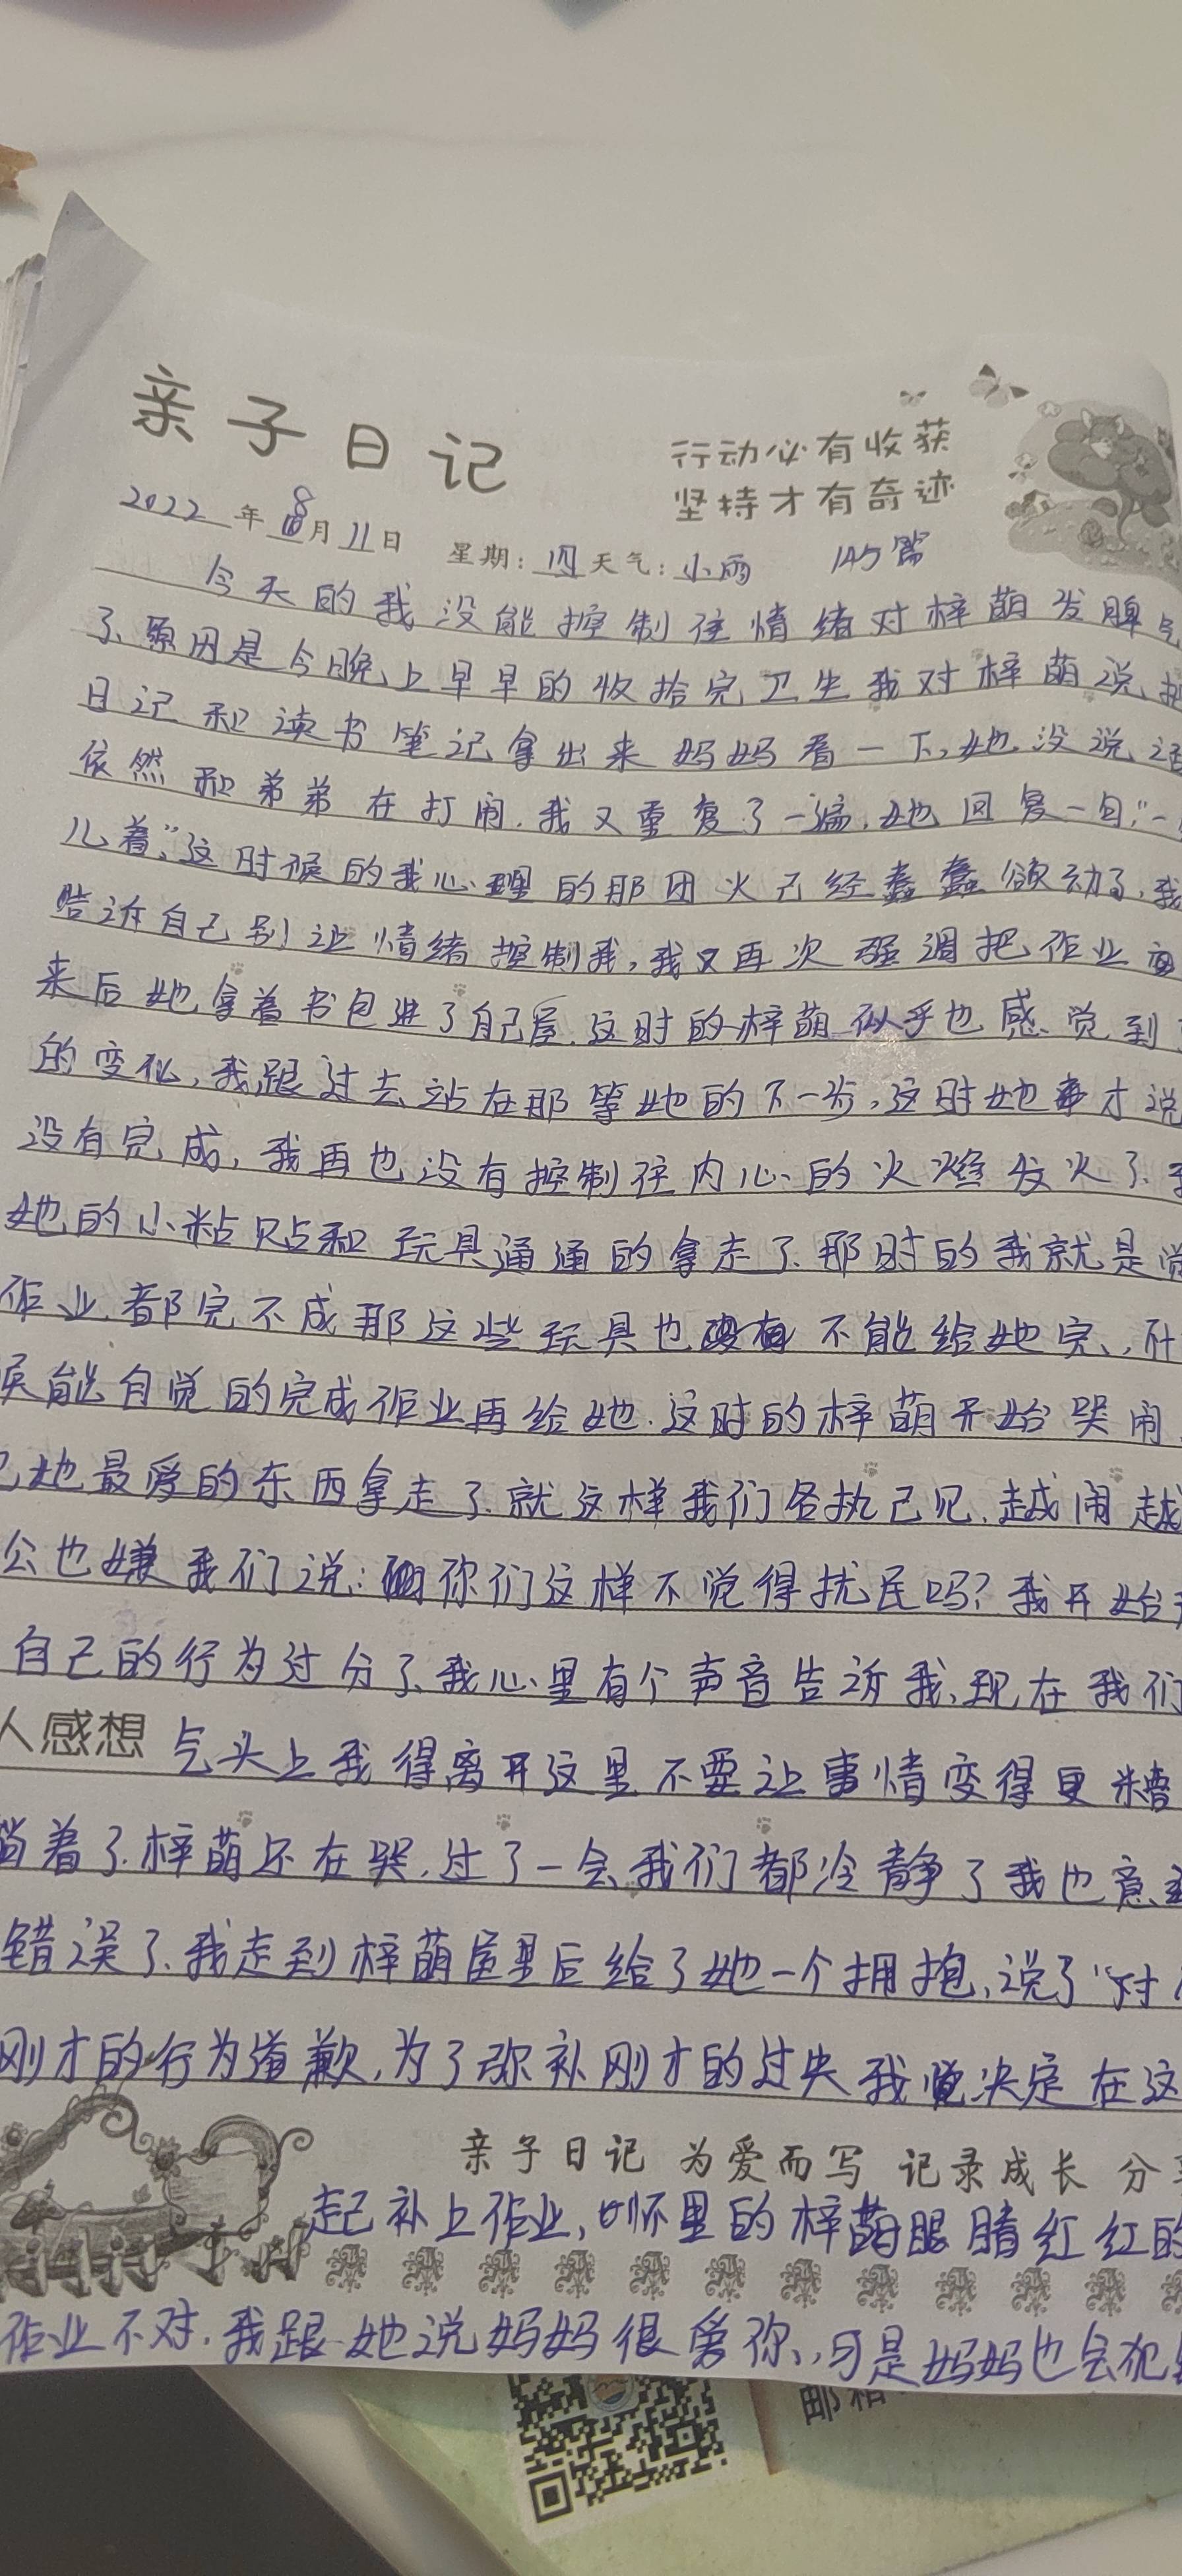 亲子日记
行动必有收获
坚持才有奇迹
2022年8月11日 星期:四 天气:小雨 145篇
今天的我没能控制住情绪对梓萌发脾气
了、原因是今晚上早早的收拾完卫生我对梓萌说把
日记和读书笔记拿出来妈妈看一下,她没说话
依然和弟弟在打闹.我又重复了一遍,她回复一句:"一
儿着,"这时候的我心理的那团火已经蠢蠢欲动了,我
告诉自己别让情绪控制我,我又再次强调把作业
来后她拿着书包进了自己屋.这时的梓萌似乎也感觉到
的变化,我跟过去站在那等她的下一步,这时她才说
没有完成,我再也没有控制住内心的火发火了、
她的小粘贴和玩具通通的拿走了.那时的我就是觉
作业都完不成那这些玩具也不能给她完,什
候能自觉的完成作业再给她.这时的梓萌开始哭闹
把她最爱的东西拿走了.就这样我们各执己见.越闹越
公也嫌我们说:你们这样不觉得扰民吗?我开始
自己的行为过分了、我心里有个声音告诉我,现在我们
人感想 气头上我得离开这里不要让事情变得更糟
躺着了.梓萌还在哭.过了一会我们都冷静了我也意
错误了.我走到梓萌屋里后给了她一个拥抱,说了"对
刚才的行为道歉,为了弥补刚才的过失我决定在这
亲子日记 为爱而写 记录成长 分
起补上作业,怀里的梓萌眼睛红红的
作业不对.我跟她说妈妈很爱你,可是妈妈也会犯
邮箱